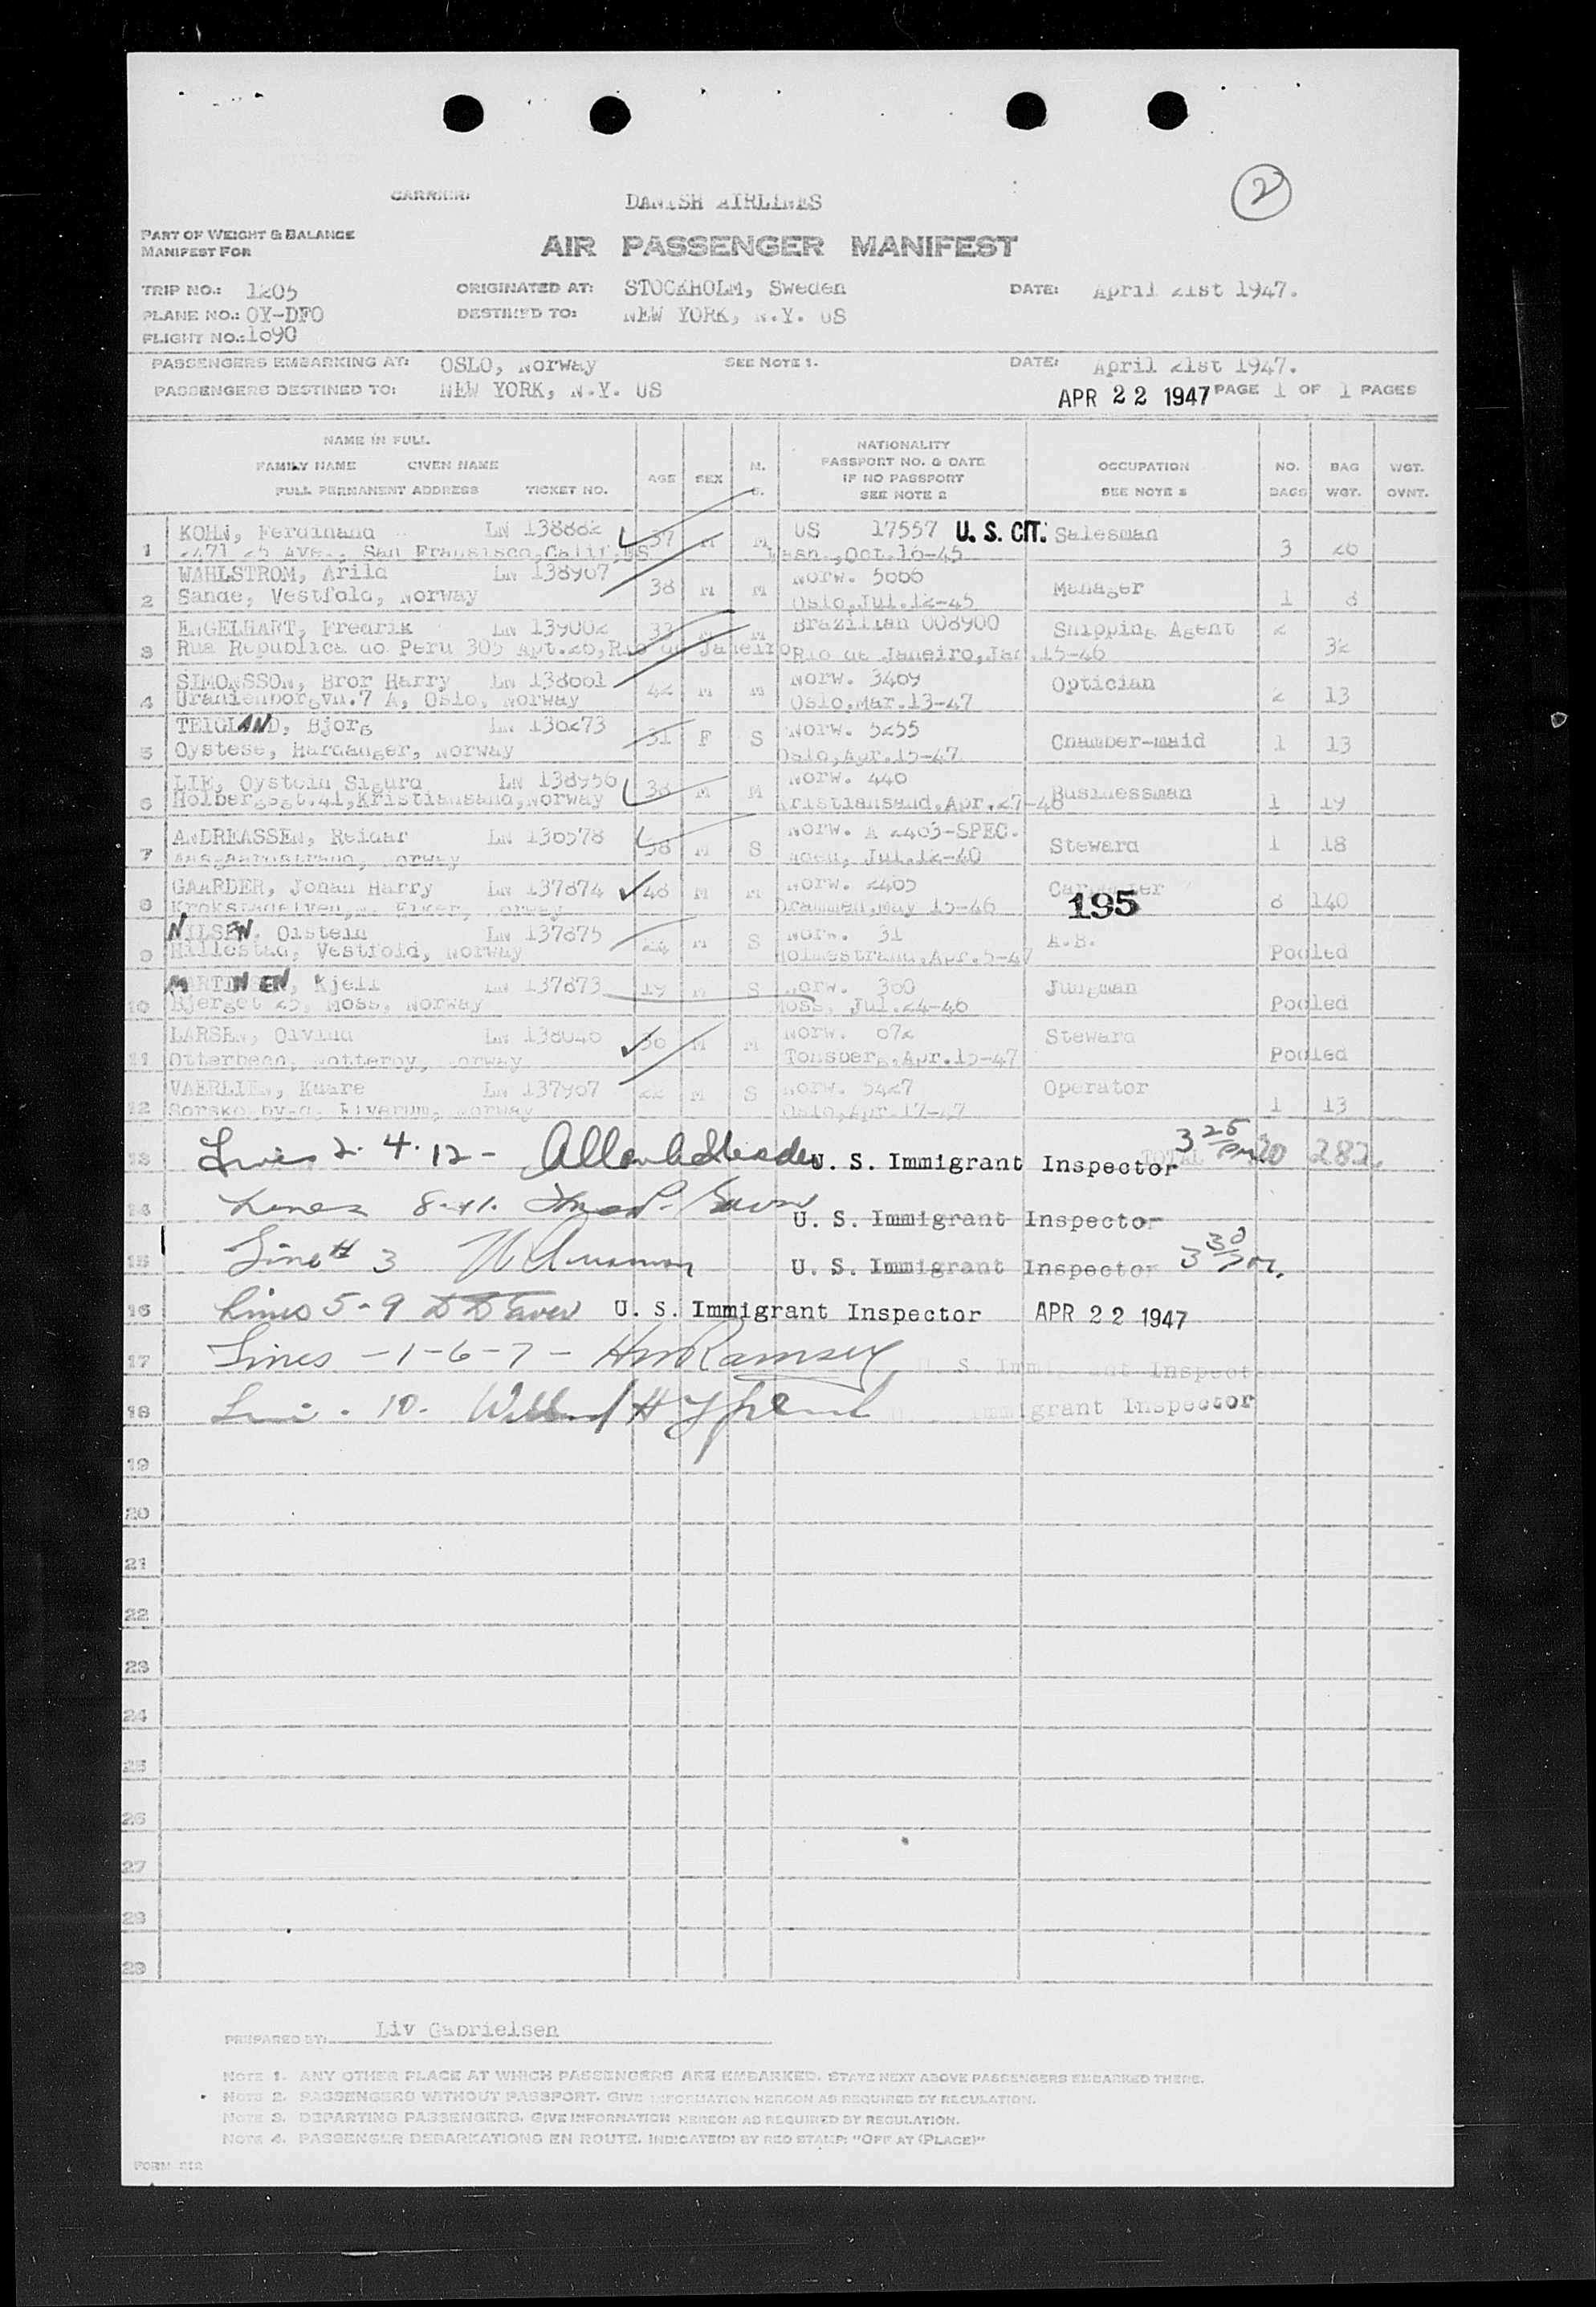 2
CARRIER: DANISH AIRLINES
PART OF WEIGHT & BALANCE
MANIFEST FOR
AIR PASSENGER MANIFEST
TRIP NO.: 1205 ORIGINATED AT: STOCKHOLM, Sweden DATE: April 21st 1947.
PLANE NO.: OY-DFO DESTINED TO: NEW YORK, N.Y. US
FLIGHT NO.: 1090
PASSENGERS EMBARKING AT: OSLO, Norway SEE NOTE 1. DATE: April 21st 1947.
PASSENGERS DESTINED TO: NEW YORK, N.Y. US APR 22 1947 PAGE 1 OF 1 PAGES
NAME IN FULL
FAMILY NAME GIVEN NAME
FULL PERMANENT ADDRESS TICKET NO.
AGE SEX M. S.
NATIONALITY
PASSPORT NO. & DATE
IF NO PASSPORT
SEE NOTE 2
OCCUPATION
SEE NOTE 3
NO. BAGS
BAG WGT.
WGT. OVNT.
KOHN, Ferdinand LN 138882 37 M M US 17557 U. S. CIT. Salesman
1 2471 25 Ave., San Fransisco, Calif. US Wash., Oct.16-45 3 26
WAHLSTROM, Arild LN 138967 38 M M Norw. 5666 Manager
2 Sande, Vestfold, Norway Oslo, Jul.12-45 1 8
ENGELHART, Fredrik LN 139002 33 M M Brazilian 008900 Shipping Agent 2
3 Rua Republica do Peru 305 Apt.26, Rio de Janeiro Rio de Janeiro, Jan.15-46 32
SIMONSSON, Bror Harry LN 138661 42 M M Norw. 3469 Optician
4 Uranienborgvn.7 A, Oslo, Norway Oslo, Mar.13-47 2 13
TEIGLAND, Bjorg LN 136273 31 F S Norw. 5255 Chamber-maid 1 13
5 Oystese, Hardanger, Norway Oslo, Apr.15-47
LIE, Oystein Sigurd LN 138956 38 M M Norw. 440 Businessman
6 Holbergsgt.41, Kristiansand, Norway Kristiansand, Apr.27-46 1 19
ANDREASSEN, Reidar LN 136578 38 M S Norw. A 2463-SPEC. Steward 1 18
7 Aasgaardstrand, Norway Jul.12-40
GAARDER, Johan Harry LN 137874 48 M M Norw. 2465 Carpenter 195
8 Krokstadelven, N. Eiker, Norway Drammen, May 15-46 8 140
NILSEN, Oistein LN 137875 24 M S Norw. 31 A.B.
9 Hillestad, Vestfold, Norway Holmestrand, Apr.5-47 Pooled
MARTINSEN, Kjell LN 137873 19 M S Norw. 360 Jungman
10 Bjerget 25, Moss, Norway Moss, Jul.24-46 Pooled
LARSEN, Oivind LN 138046 36 M M Norw. 672 Steward
11 Otterbech, Notteroy, Norway Tonsberg, Apr.15-47 Pooled
VAERLIEN, Kaare LN 137967 22 M S Norw. 5427 Operator
12 Elverum, Norway Oslo, Apr.17-47 1 13
13 Lines 2. 4. 12 - U. S. Immigrant Inspector 3 25 pm TOTAL 20 282.
14 Lines 8-11. U. S. Immigrant Inspector
15 Line # 3 U. S. Immigrant Inspector 3 30 pm.
16 Lines 5-9 U. S. Immigrant Inspector APR 22 1947
17 Lines - 1-6-7 - HM Ramsey U. S. Immigrant Inspector
18 Line . 10. Immigrant Inspector
19
20
21
22
23
24
25
26
27
28
29
PREPARED BY: Liv Gabrielsen
NOTE 1. ANY OTHER PLACE AT WHICH PASSENGERS ARE EMBARKED. STATE NEXT ABOVE PASSENGERS EMBARKED THERE.
NOTE 2. PASSENGERS WITHOUT PASSPORT. GIVE INFORMATION HEREON AS REQUIRED BY REGULATION.
NOTE 3. DEPARTING PASSENGERS. GIVE INFORMATION HEREON AS REQUIRED BY REGULATION.
NOTE 4. PASSENGER DEBARKATIONS EN ROUTE. INDICATE(D) BY RED STAMP: "OFF AT (PLACE)"
FORM 212